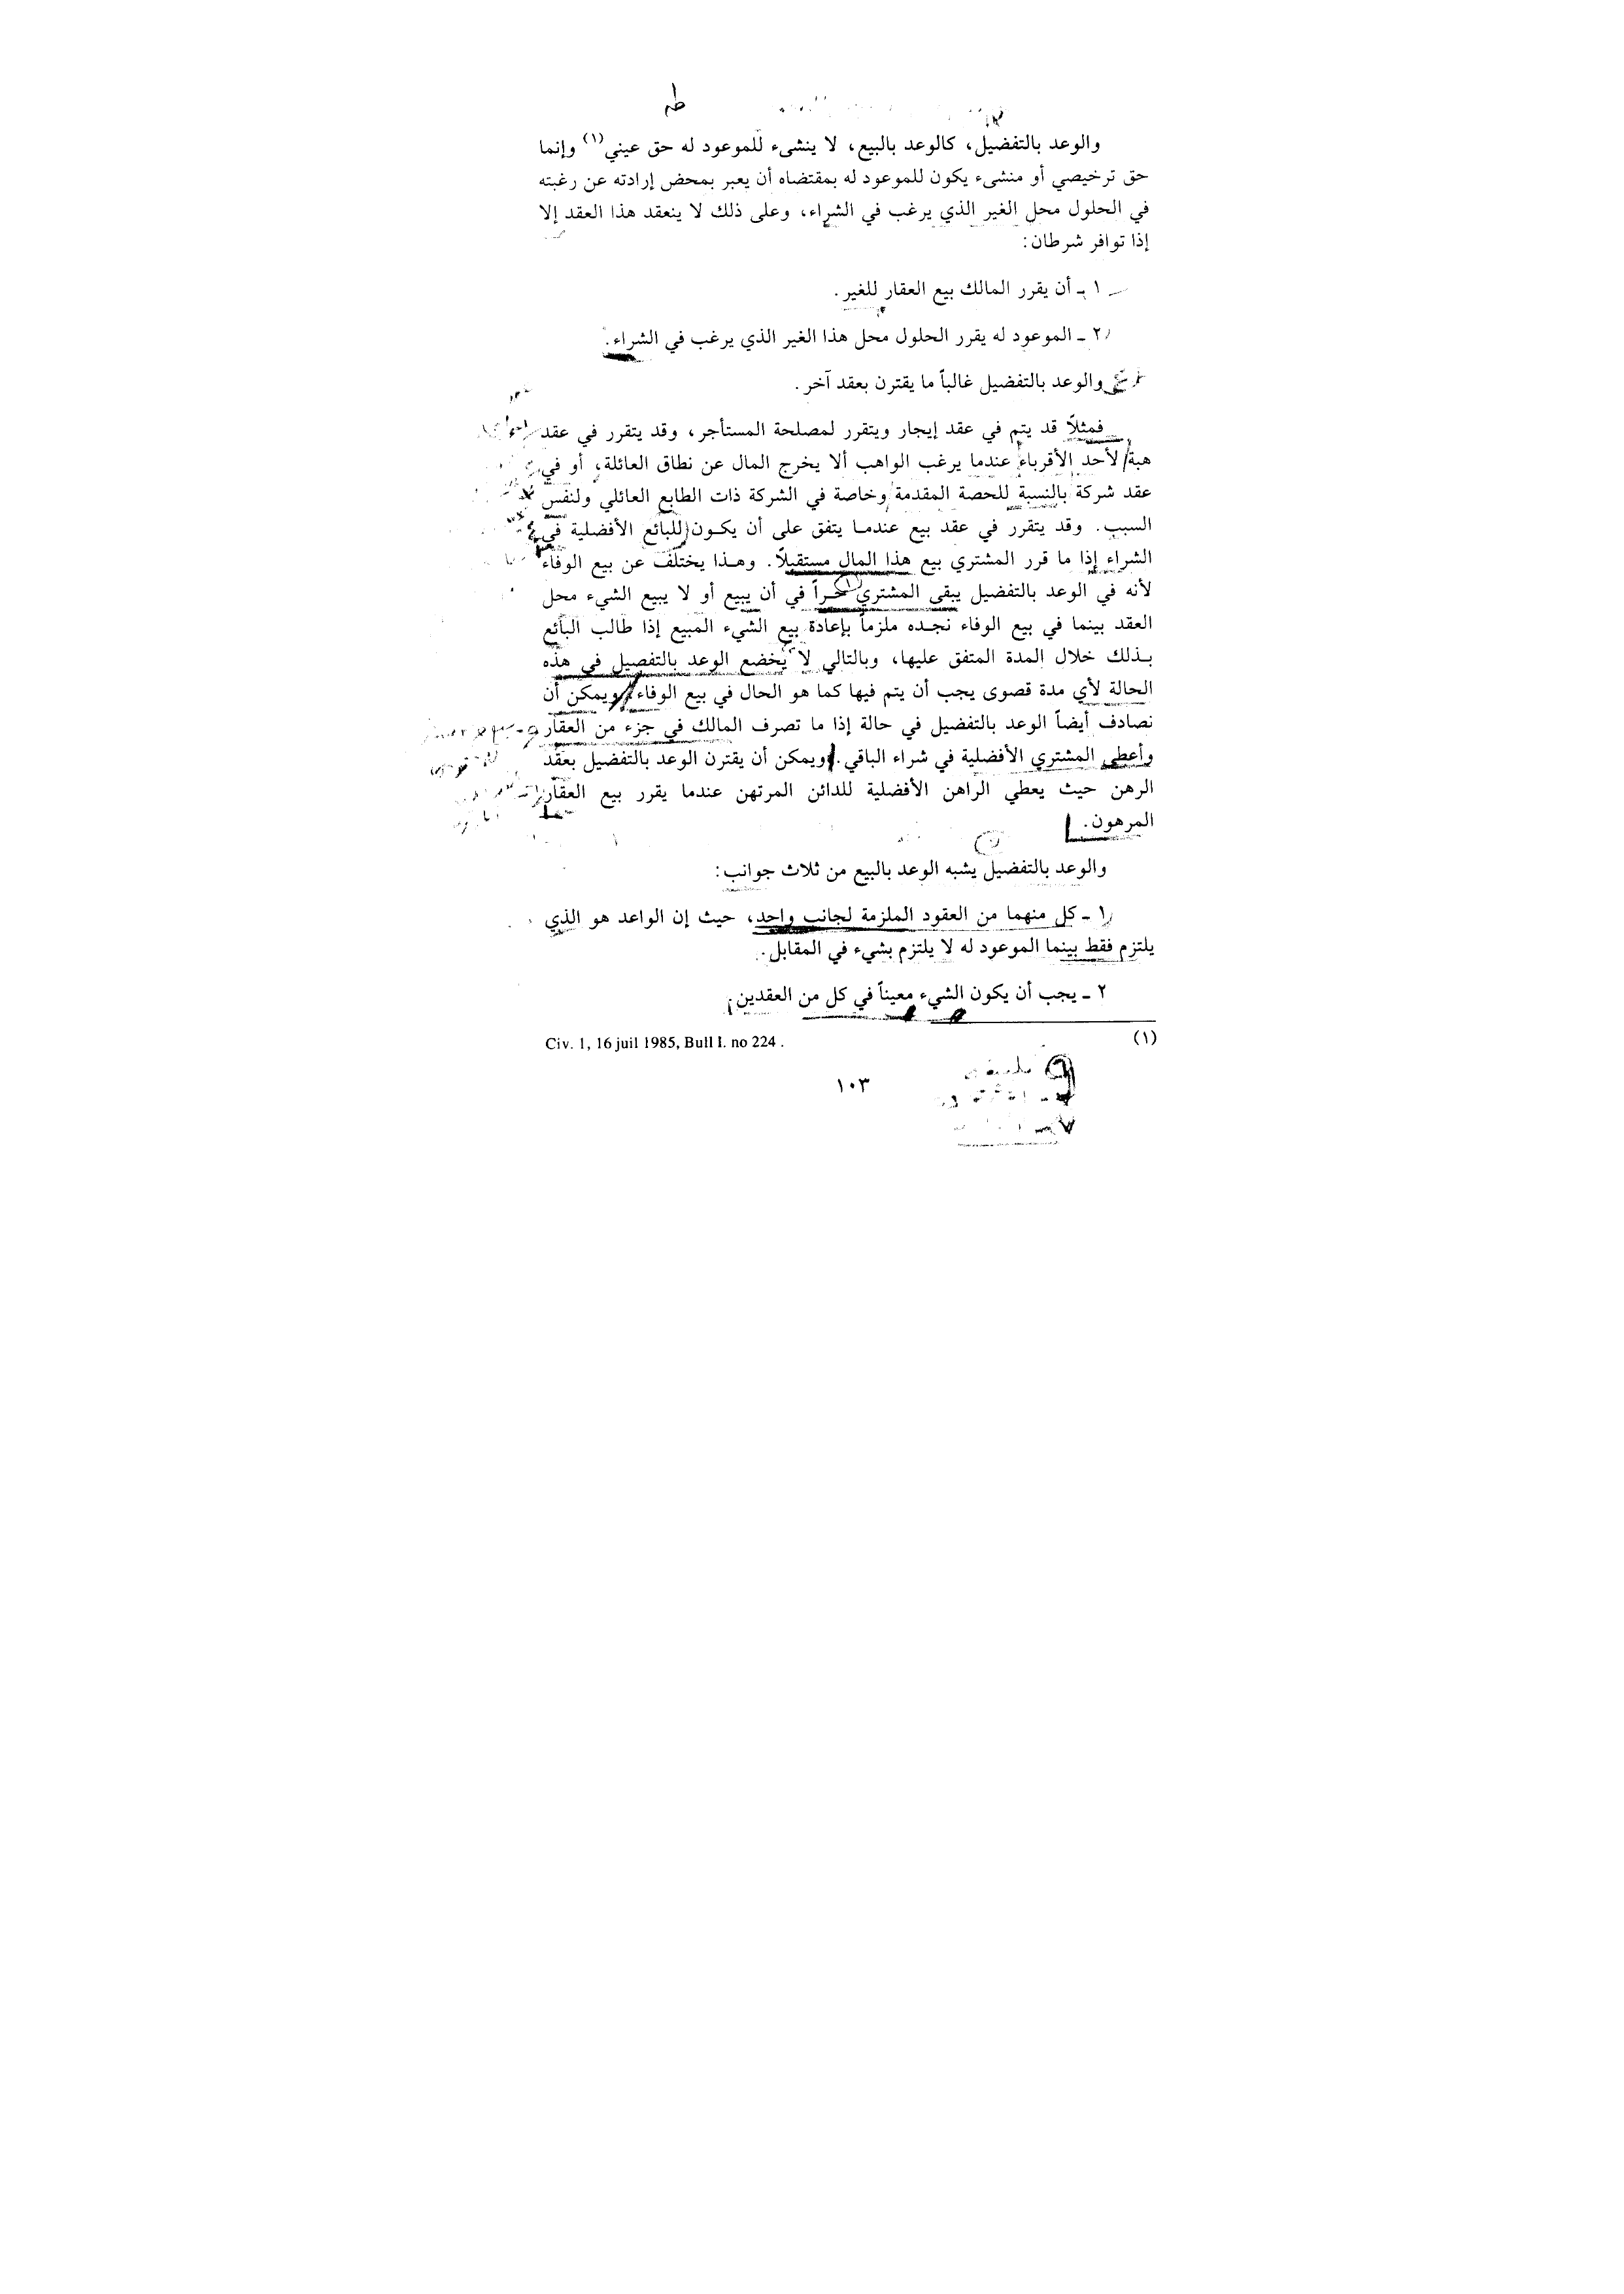 والوعد بالتفضيل، كالوعد بالبيع، لا ينشىء للموعود له حق عيني(١) وإنما
حق ترخيصي أو منشىء يكون للموعود له بمقتضاه أن يعبر بمحض إرادته عن رغبته
في الحلول محل الغير الذي يرغب في الشراء، وعلى ذلك لا ينعقد هذا العقد إلا
إذا توافر شرطان:
١ - أن يقرر المالك بيع العقار للغير.
٢ - الموعود له يقرر الحلول محل هذا الغير الذي يرغب في الشراء.
والوعد بالتفضيل غالباً ما يقترن بعقد آخر.
فمثلاً قد يتم في عقد إيجار ويتقرر لمصلحة المستأجر، وقد يتقرر في عقد
هبة لأحد الأقرباء عندما يرغب الواهب ألا يخرج المال عن نطاق العائلة، أو في
عقد شركة بالنسبة للحصة المقدمة وخاصة في الشركة ذات الطابع العائلي ولنفس
السبب. وقد يتقرر في عقد بيع عندما يتفق على أن يكون للبائع الأفضلية في
الشراء إذا ما قرر المشتري بيع هذا المال مستقبلاً. وهذا يختلف عن بيع الوفاء
لأنه في الوعد بالتفضيل يبقى المشتري حراً في أن يبيع أو لا يبيع الشيء محل
العقد بينما في بيع الوفاء نجده ملزماً بإعادة بيع الشيء المبيع إذا طالب البائع
بذلك خلال المدة المتفق عليها، وبالتالي لا يخضع الوعد بالتفصيل في هذه
الحالة لأي مدة قصوى يجب أن يتم فيها كما هو الحال في بيع الوفاء ويمكن أن
نصادف أيضاً الوعد بالتفضيل في حالة إذا ما تصرف المالك في جزء من العقار
وأعطى المشتري الأفضلية في شراء الباقي. ويمكن أن يقترن الوعد بالتفضيل بعقد
الرهن حيث يعطي الراهن الأفضلية للدائن المرتهن عندما يقرر بيع العقار
المرهون.
والوعد بالتفضيل يشبه الوعد بالبيع من ثلاث جوانب:
١ - كل منهما من العقود الملزمة لجانب واحد، حيث إن الواعد هو الذي
يلتزم فقط بينما الموعود له لا يلتزم بشيء في المقابل.
٢ - يجب أن يكون الشيء معيناً في كل من العقدين.
(١) Civ. 1, 16 juil 1985, Bull I. no 224 .
١٠٣